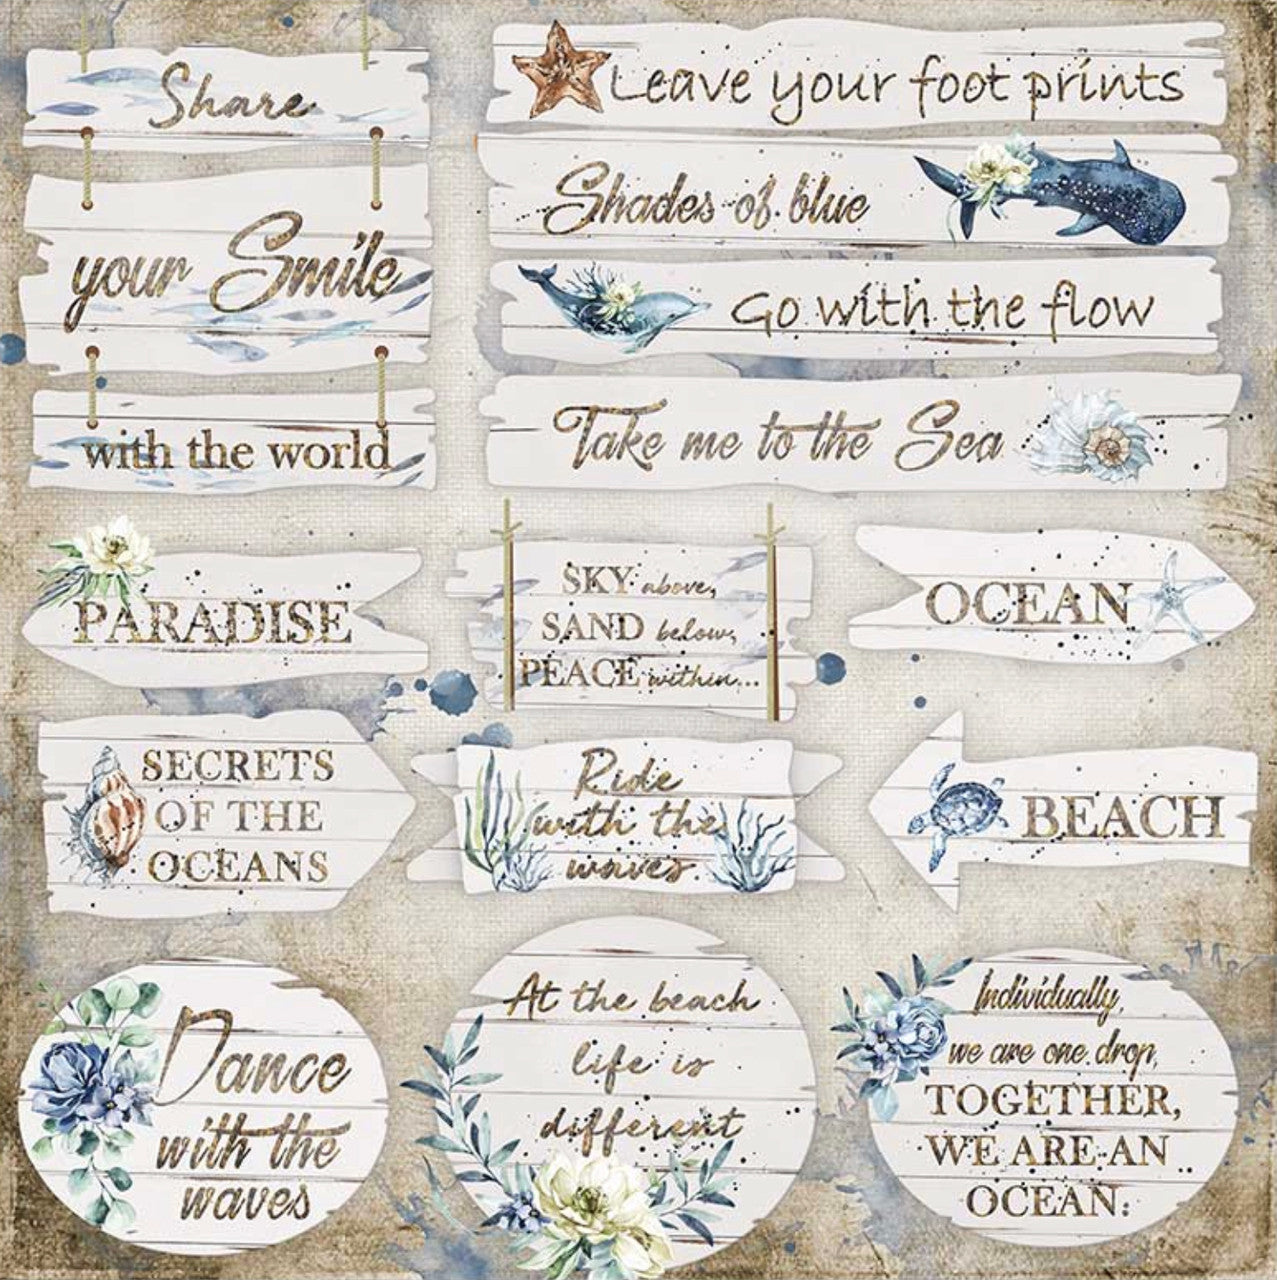 Share
your Smile
with the world
Leave your foot prints
Shades of blue
Go with the flow
Take me to the Sea
PARADISE
SKY above,
SAND below,
PEACE within...
OCEAN
SECRETS
OF THE
OCEANS
Ride
with the
waves
BEACH
Dance
with the
waves
At the beach
life is
different
Individually,
we are one drop,
TOGETHER,
WE ARE AN
OCEAN.